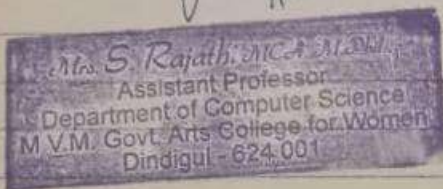 Mrs. S. Rajathi, MCA M.Phil.,
Assistant Professor
Department of Computer Science
M V.M. Govt. Arts College for Women
Dindigul - 624 001